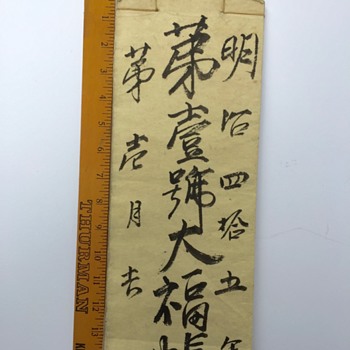 明治四拾五年
第壹號大福帳
第壱月吉
THURMAN
1 2 3 4 5 6 7 8 9 10 11 12 13